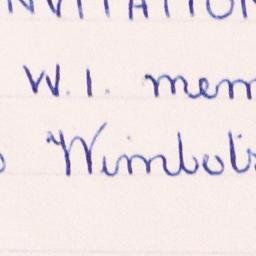 INVITATION
W.I. mem
Wimbolis